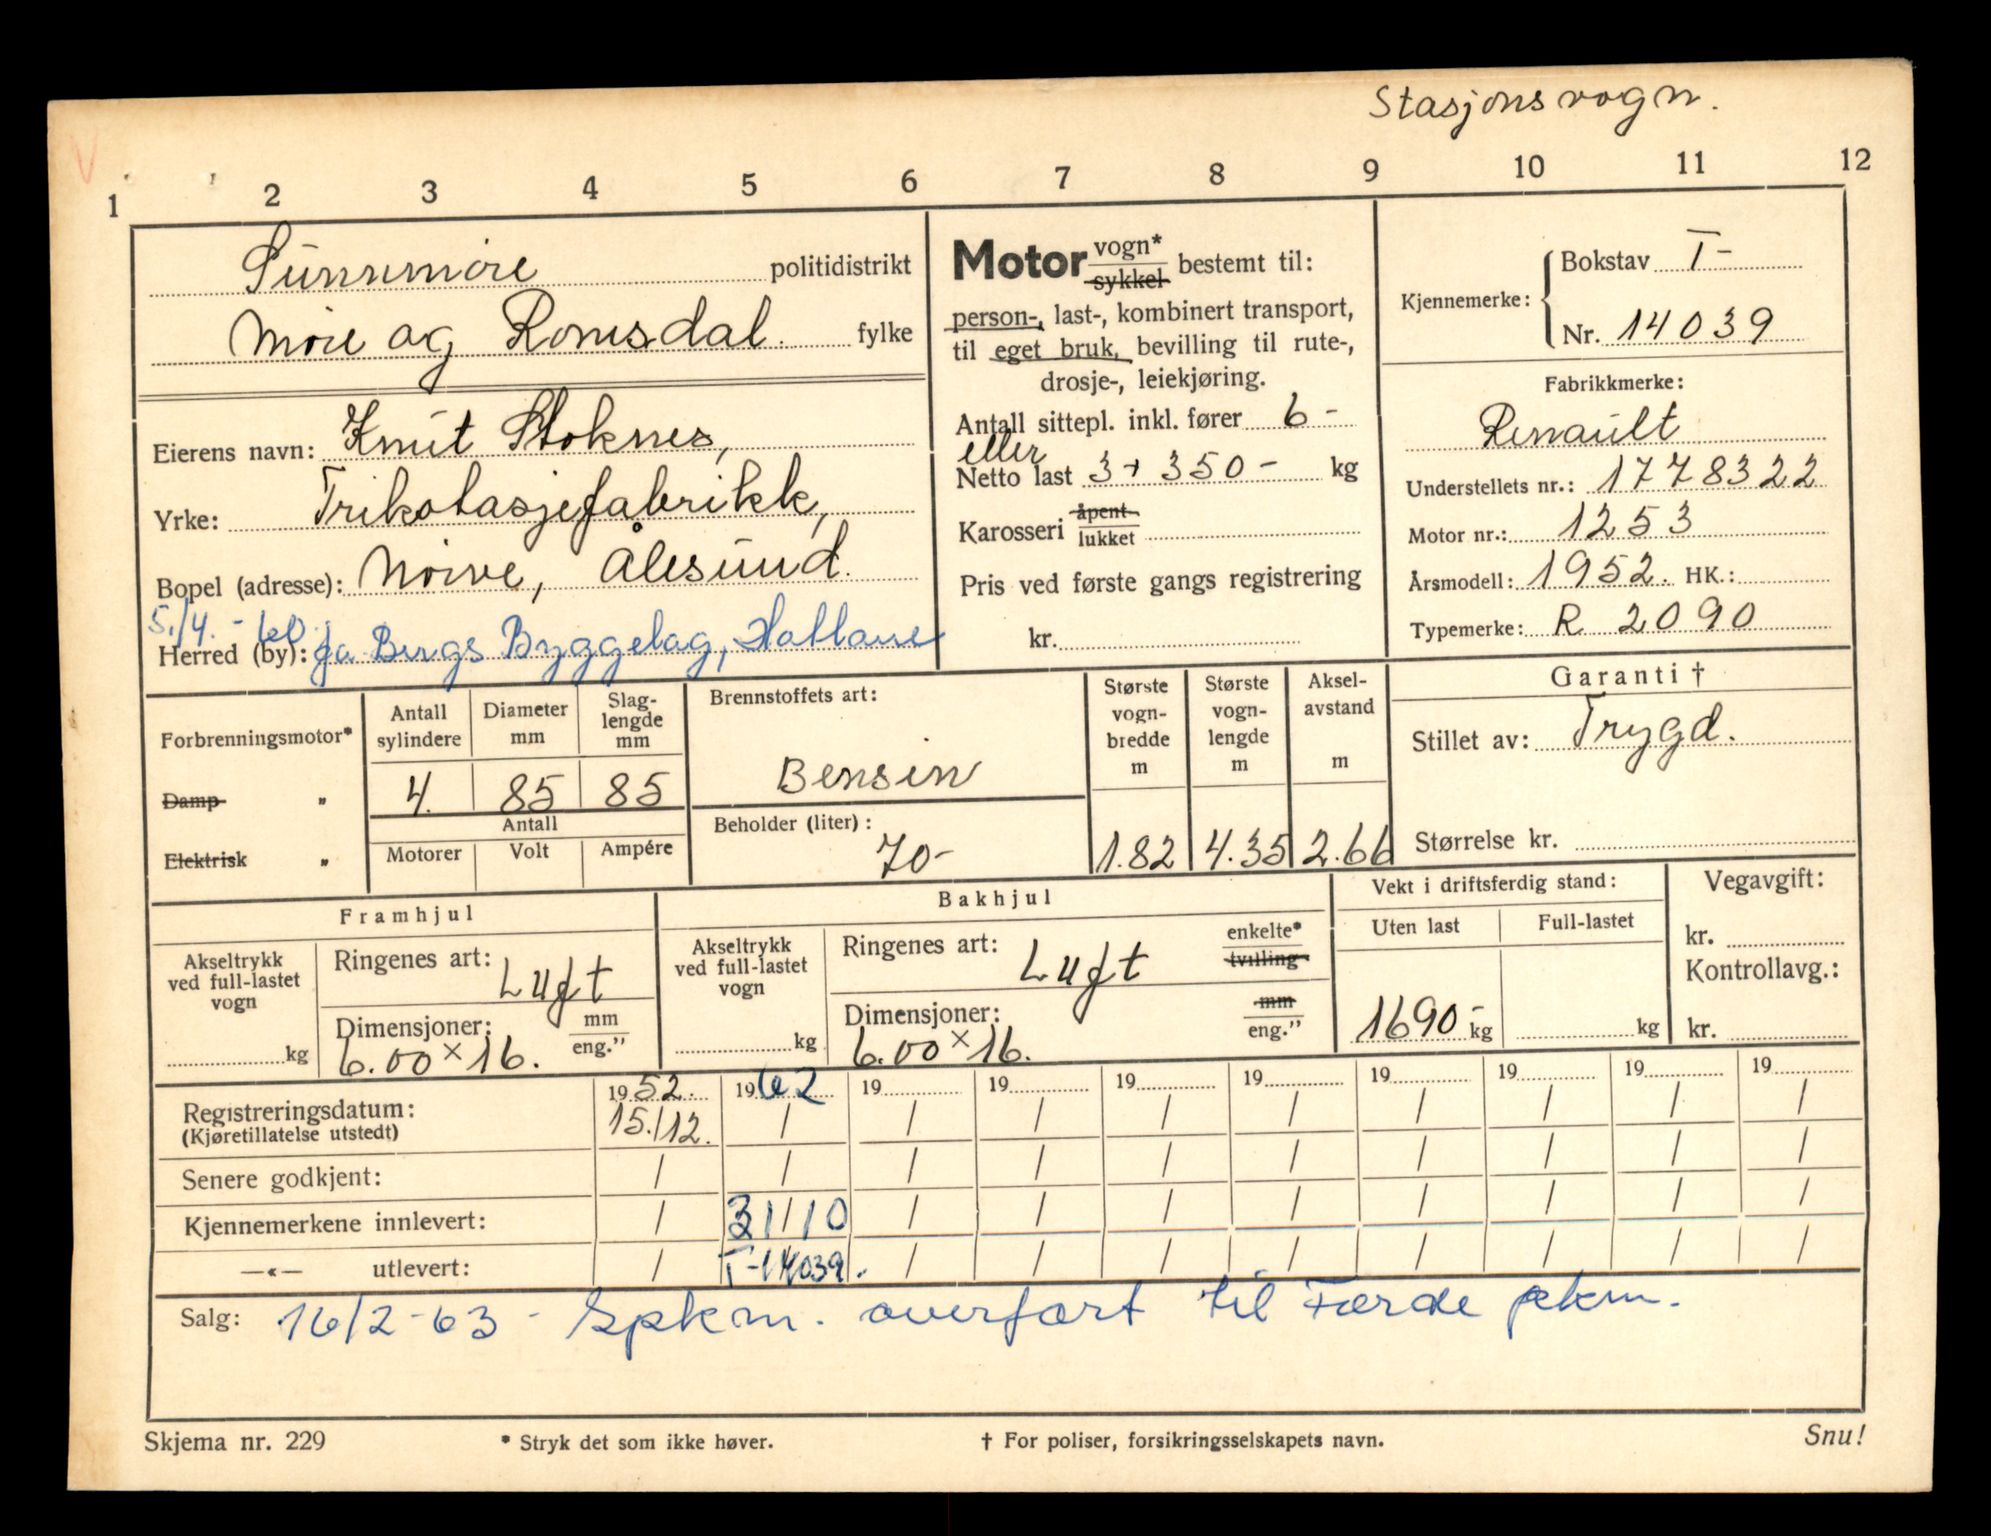 Stasjonsvogn.
1 2 3 4 5 6 7 8 9 10 11 12
Sunnmøre politidistrikt
Møre og Romsdal. fylke
Eierens navn: Knut Stoknes,
Yrke: Trikotasjefabrikk,
Bopel (adresse): Nørve, Ålesund.
5./4. - 60.
Herred (by): Ja Bergs Byggelag, Hatlane
Motor vogn* sykkel bestemt til:
person-, last-, kombinert transport,
til eget bruk, bevilling til rute-,
drosje-, leiekjøring.
Antall sittepl. inkl. fører 6 -
eller
Netto last 3 + 350 - kg
Karosseri åpent lukket
Pris ved første gangs registrering
kr.
Kjennemerke: Bokstav T-
Nr. 14039
Fabrikkmerke:
Renault
Understellets nr.: 1778322
Motor nr.: 1253
Årsmodell: 1952. HK.:
Typemerke: R 2090
Garanti †
Stillet av: Trygd.
Størrelse kr.
Forbrenningsmotor*
Damp "
Elektrisk "
Antall sylindere
4.
Diameter mm
85
Slag-lengde mm
85
Antall
Motorer Volt Ampére
Brennstoffets art:
Bensin
Beholder (liter):
70-
Største vogn-bredde m
1.82
Største vogn-lengde m
4.35
Aksel-avstand m
2.66
Framhjul
Akseltrykk ved full-lastet vogn
kg
Ringenes art: Luft
Dimensjoner: mm eng."
6.00 x 16.
Bakhjul
Akseltrykk ved full-lastet vogn
kg
Ringenes art: Luft enkelte* tvilling
Dimensjoner: mm eng."
6.00 x 16.
Vekt i driftsferdig stand:
Uten last Full-lastet
1690 - kg kg
Vegavgift:
kr.
Kontrollavg.:
kr.
1952. 1962 19 19 19 19 19 19 19 19
Registreringsdatum: 15./12. / / / / / / / / /
(Kjøretillatelse utstedt)
Senere godkjent: / / / / / / / / / /
Kjennemerkene innlevert: / 31/10 / / / / / / / /
—«— utlevert: / T-14039. / / / / / / / /
Salg: 16/2-63 - Spkm. overført til Førde pkm.
Skjema nr. 229 * Stryk det som ikke høver. † For poliser, forsikringsselskapets navn. Snu!